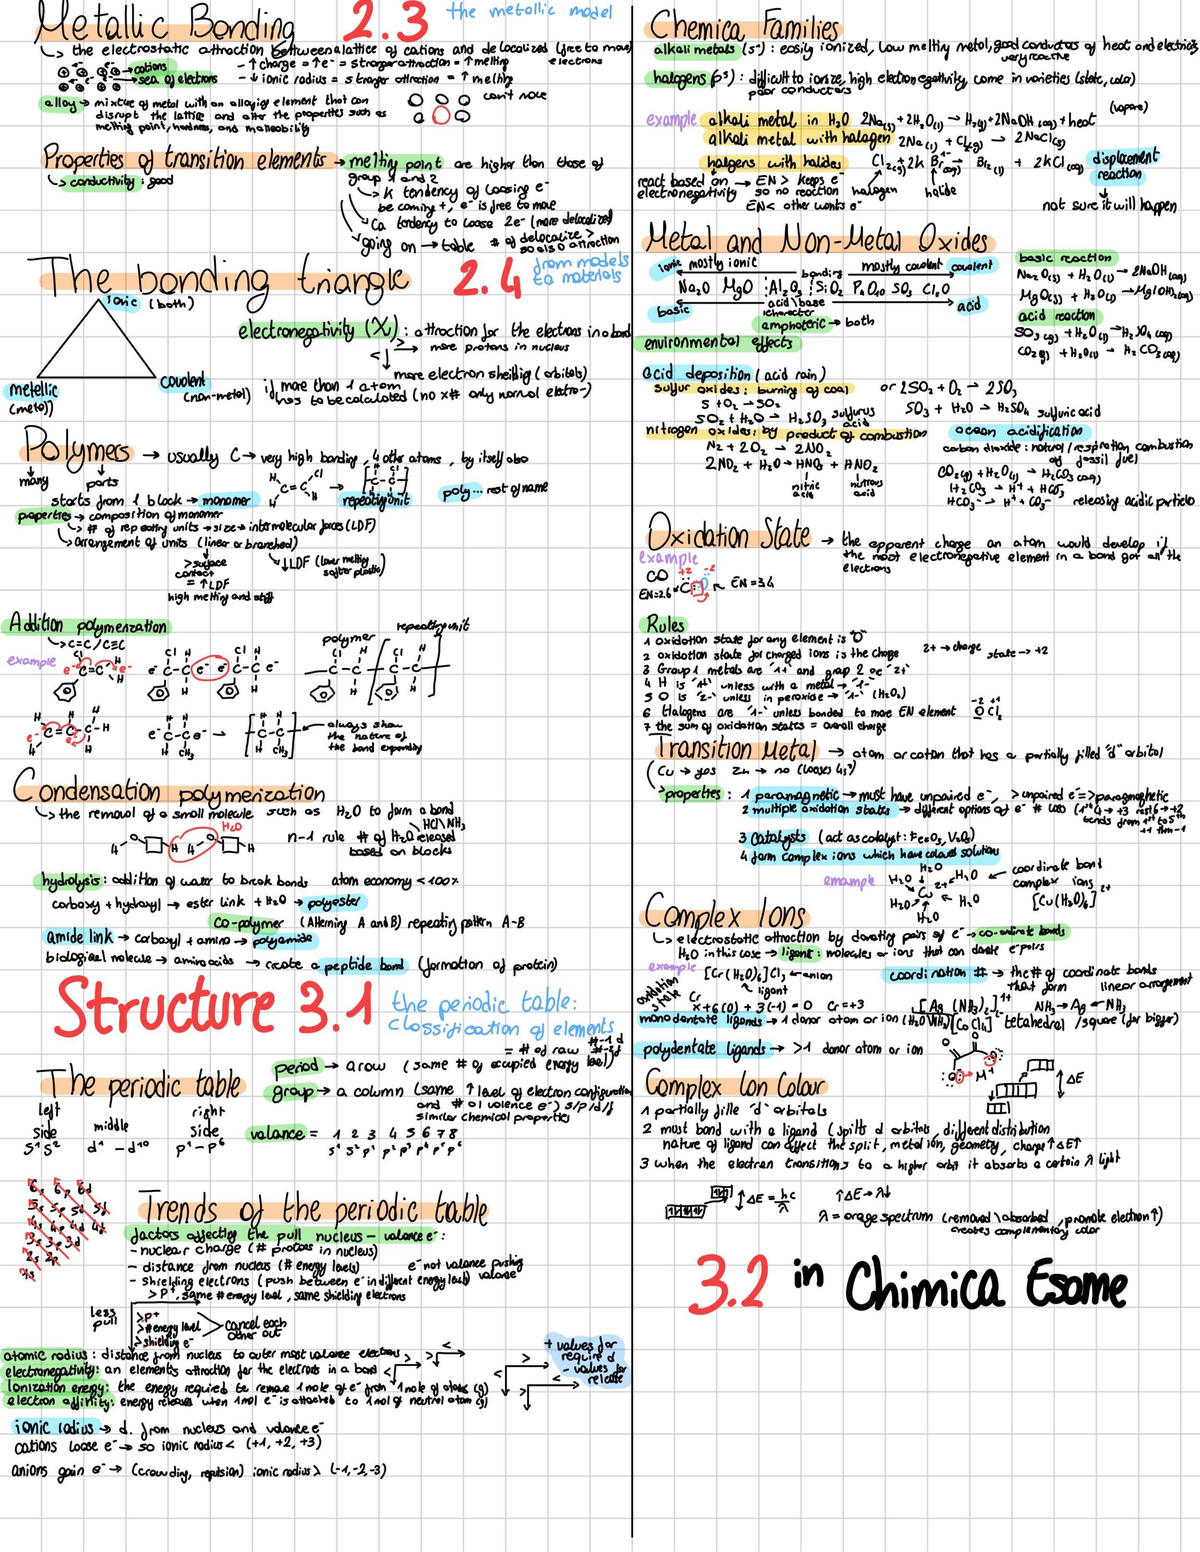 Metallic Bonding 2.3 the metallic model
↳ the electrostatic attraction between a lattice of cations and delocalized (free to move) electrons
→ cations
→ sea of electrons
- ↑ charge = ↑ e⁻ = stronger attraction = ↑ melting
- ↓ ionic radius = stronger attraction = ↑ melting
alloy → mixture of metal with an alloying element that can
disrupt the lattice and alter the properties such as
melting point, hardness, and malleability
can't move
Properties of transition elements → melting point are higher than those of
group 1 and 2
↳ conductivity: good
↳ K tendency of loosing e⁻
becoming +, e⁻ is free to move
↳ Ca tendency to loose 2e⁻ (more delocalized)
↳ going on → table # of delocalize >
so also attraction
The bonding triangle 2.4 from models to materials
ionic (both)
electronegativity (X): attraction for the electrons in a bond
> more protons in nucleus
<
more electron sheilding (orbitals)
metellic
(metal)
covalent
(non-metal)
if more than 1 atom
has to be calculated (no x# only normal eletro-)
Polymers → usually C → very high bonding, 4 other atoms, by itself also
many parts
H Cl
C=C
H H
poly... rest of name
starts from 1 block → monomer repeating unit
properties → composition of monomer
↳ # of repeating units → size → intermolecular forces (LDF)
↳ arrangement of units (linear or branched)
> surface
contact
= ↑ LDF
high melting and stiff
↓ LDF (lower melting
softer plastic)
Addition polymerization
↳ C=C / C≡C
example
polymer
repeating unit
always show
the nature of
the bond expanding
Condensation polymerization
↳ the removal of a small molecule such as H₂O to form a bond
HCl \ NH₃
H₂O
n-1 rule # of H₂O released
based on blocks
hydrolysis: addition of water to break bonds atom economy < 100%
carboxy + hydroxyl → ester link + H₂O → polyester
co-polymer (Alterning A and B) repeating pattern A-B
amide link → carboxyl + amino → polyamide
biological molecule → amino acids → create a peptide bond (formation of protein)
Structure 3.1 the periodic table:
classification of elements
= # of raw #-1 d
#-2 f
The periodic table
period → a row (same # of occupied energy level)
group → a column (same ↑ level of electron configuration
and # of valence e⁻) s/p/d/f
similar chemical properties
left
side
s¹ s²
middle
d¹ - d¹⁰
right
side
p¹ - p⁶
valance = 1 2 3 4 5 6 7 8
s¹ s² p¹ p² p³ p⁴ p⁵ p⁶
6s 6p 6d
5s 5p 5d 5f
4s 4p 4d 4f
3s 3p 3d
2s 2p
1s
Trends of the periodic table
factors affecting the pull nucleus - valance e⁻:
- nuclear charge (# protos in nucleus)
- distance from nucleus (# energy levels)
- shielding electrons (push between e⁻ in different energy level)
e⁻ not valance pushing
valance
> P⁺, same # energy level, same shielding electrons
less
pull
> p⁺
> # energy level
> shielding e⁻
cancel each
other out
atomic radius: distance from nucleus to outer most valance electrons
electronegativity: an elements attraction for the electrons in a bond
Ionization energy: the energy required to remove 1 mole of e⁻ from 1 mole of atoms (g)
electron affinity: energy released when 1 mol e⁻ is attached to 1 mol of neutral atom (g)
+ values for
require d
- values for
release
ionic radius → d. from nucleus and valance e⁻
cations loose e⁻ → so ionic radius < (+1, +2, +3)
anions gain e⁻ → (crowding, repulsion) ionic radius > (-1, -2, -3)
Chemica Families
alkali metals (s¹): easily ionized, low melting metal, good conductors of heat and electricity
very reactive
halogens (p⁵): difficult to ionize, high electronegativity, come in varieties (state, color)
poor conductors
(vapore)
example alkali metal in H₂O 2Na(s) + 2H₂O(l) → H₂(g) + 2NaOH(aq) + heat
alkali metal with halogen 2Na(l) + Cl₂(g) → 2NaCl(s)
halgens with halides Cl₂(g) + 2K Br(aq) → Br₂(l) + 2KCl(aq) displacement
reaction
react based on → EN > keeps e⁻
electronegativity so no reaction
EN < other wants e⁻
halogen halide
not sure it will happen
Metal and Non-Metal Oxides
ionic mostly ionic bonding mostly covalent covalent
Na₂O MgO Al₂O₃ SiO₂ P₄O₁₀ SO₃ Cl₂O
basic acid\base
character acid
amphoteric → both
basic reaction
Na₂O(s) + H₂O(l) → 2NaOH(aq)
MgO(s) + H₂O(l) → Mg(OH)₂(aq)
acid reaction
SO₃(g) + H₂O(l) → H₂SO₄(aq)
CO₂(g) + H₂O(l) → H₂CO₃(aq)
environmental effects
acid deposition (acid rain)
sulfur oxides: burning of coal or 2SO₂ + O₂ → 2SO₃
S + O₂ → SO₂
SO₂ + H₂O → H₂SO₃ sulfurus
acid
SO₃ + H₂O → H₂SO₄ sulfuric acid
nitrogen oxides: by product of combustion
N₂ + 2O₂ → 2NO₂
2NO₂ + H₂O → HNO₃ + HNO₂
nitric
acid
nitrous
acid
ocean acidification
carbon dioxide: natural/respiration combustion
of fossil fuel
CO₂(g) + H₂O(l) → H₂CO₃(aq)
H₂CO₃ → H⁺ + HCO₃⁻
HCO₃⁻ → H⁺ + CO₃⁻ releasing acidic particles
Oxidation State → the apparent charge an atom would develop if
the most electronegative element in a bond got all the
electrons
example
CO
+2 -2
EN=2.6 EN=3.4
Rules
1 oxidation state for any element is "0"
2 oxidation state for charged ions is the charge 2+ → charge state → +2
3 Group 1 metals are "1+" and grap 2 are "2+"
4 H is "1+" unless with a metal → "1-"
5 O is "2-" unless in peroxide → "1-" (H₂O₂)
6 Halogens are "1-" unless bonded to more EN element
-2 +1
O Cl₂
7 the sum of oxidation states = overall charge
Transition Metal → atom or cation that has a partially filled "d" orbital
(Cu → yes Zn → no (looses 4s²)
> properties: 1 paramagnetic → must have unpaired e⁻, > unpaired e⁻ = > paragmagnetic
2 multiple oxidation states → different options of e⁻ # loss
3 catalysts (act as catalyst: Fe₂O₃, V₂O₅)
4 form complex ions which have coloured solutions
emample
H₂O H₂O H₂O Cu 2+ H₂O H₂O H₂O
coordinate bond
complex ions
[Cu(H₂O)₆]²⁺
Complex Ions
↳ electrostatic attraction by donating pairs of e⁻ → co-ordinate bonds
H₂O in this case → ligant: molecules or ions that can donate e⁻ pairs
example [Cr(H₂O)₆]Cl₃ ← anion
ligant
oxidation
state
Cr
x + 6(0) + 3(-1) = 0 Cr = +3
coordination # → the # of coordinate bonds
that form linear arrangement
[Ag(NH₃)₂]¹⁺ NH₃ → Ag ← NH₃
monodentate ligands → 1 donor atom or ion (H₂O \ NH₃) [CoCl₄]²⁻ tetahedral /square (for bigger)
polydentate ligands → >1 donor atom or ion
M⁺
ΔE
Complex Ion Colour
1 partially fille "d" orbitals
2 must bond with a ligand (splits d orbitals, different distribution
nature of ligand can affect the split, metal ion, geometry, charge ↑ ΔE↑
3 when the electron transitions to a higher orbit it absorbs a certain λ light
ΔE = hc/λ
↑ΔE → λ↓
λ = orage spectrum (removed \ absorbed, promote electron ↑)
creates complementary color
3.2 in Chimica Esame